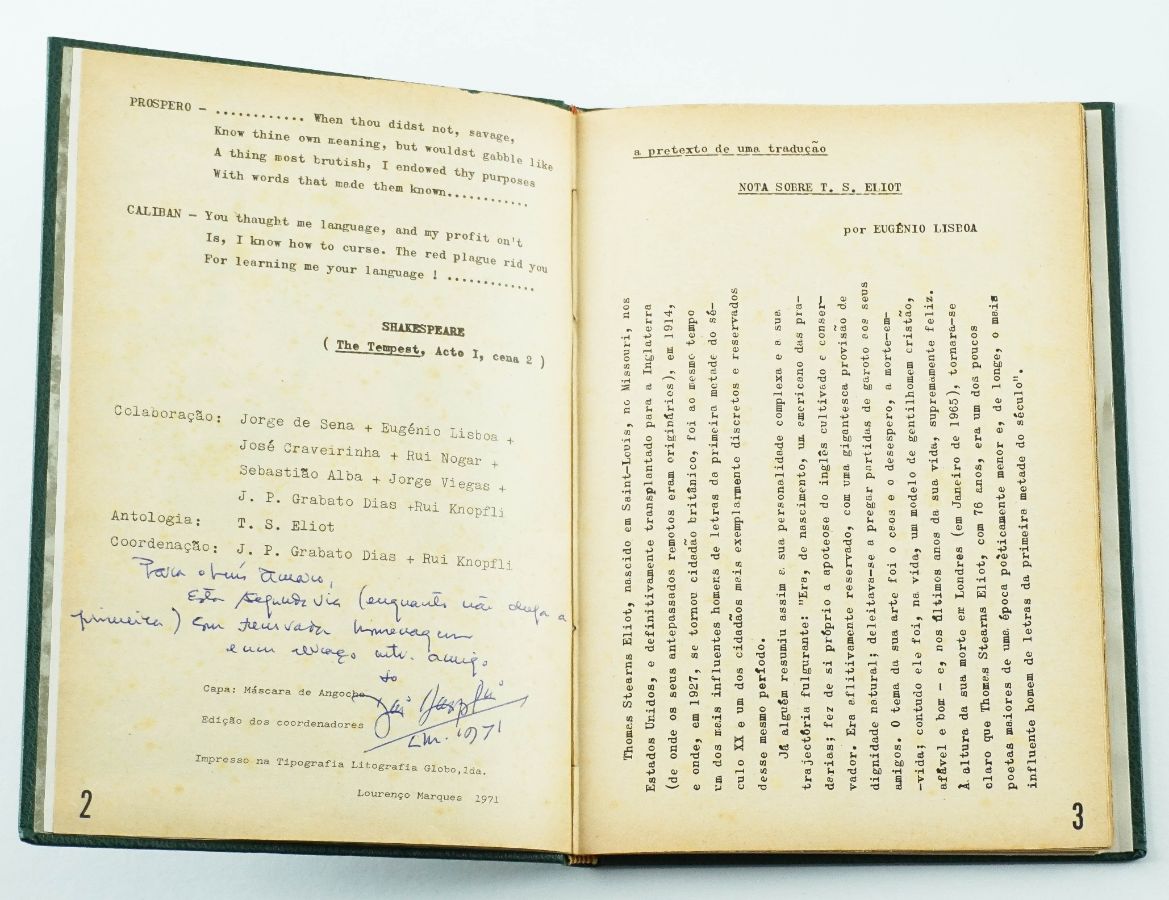 PROSPERO - ............ When thou didst not, savage,
Know thine own meaning, but wouldst gabble like
A thing most brutish, I endowed thy purposes
With words that made them known............
CALIBAN - You thaught me language, and my profit on't
Is, I know how to curse. The red plague rid you
For learning me your language ! .............
SHAKESPEARE
( The Tempest, Acto I, cena 2 )
Colaboração: Jorge de Sena + Eugénio Lisboa +
José Craveirinha + Rui Nogar +
Sebastião Alba + Jorge Viegas +
J. P. Grabato Dias +Rui Knopfli
Antologia: T. S. Eliot
Coordenação: J. P. Grabato Dias + Rui Knopfli
Para o
esta segunda via (enquanto não chega a
primeira) com renovada homenagem
e um abraço amigo
do
Capa: Máscara de Angoche
Edição dos coordenadores
LM. 1971
Impresso na Tipografia Litografia Globo,lda.
Lourenço Marques 1971
2
a pretexto de uma tradução
NOTA SOBRE T. S. ELIOT
por EUGÉNIO LISBOA
Thomas Stearns Eliot, nascido em Saint-Louis, no Missouri, nos
Estados Unidos, e definitivamente transplantado para a Inglaterra
(de onde os seus antepassados remotos eram originários), em 1914,
e onde, em 1927, se tornou cidadão britânico, foi ao mesmo tempo
um dos mais influentes homens de letras da primeira metade do sé-
culo XX e um dos cidadãos mais exemplarmente discretos e reservados
desse mesmo período.
Já alguém resumiu assim a sua personalidade complexa e a sua
trajectória fulgurante: "Era, de nascimento, um americano das pra-
darias; fez de si próprio a apoteose do inglês cultivado e conser-
vador. Era aflitivamente reservado, com uma gigantesca provisão de
dignidade natural; deleitava-se a pregar partidas de garoto aos seus
amigos. O tema da sua arte foi o caos e o desespero, a morte-em-
-vida; contudo ele foi, na vida, um modelo de gentilhomem cristão,
afável e bom - e, nos últimos anos da sua vida, supremamente feliz.
À altura da sua morte em Londres (em Janeiro de 1965), tornara-se
claro que Thomas Stearns Eliot, com 76 anos, era um dos poucos
poetas maiores de uma época poèticamente menor e, de longe, o mais
influente homem de letras da primeira metade do século".
3